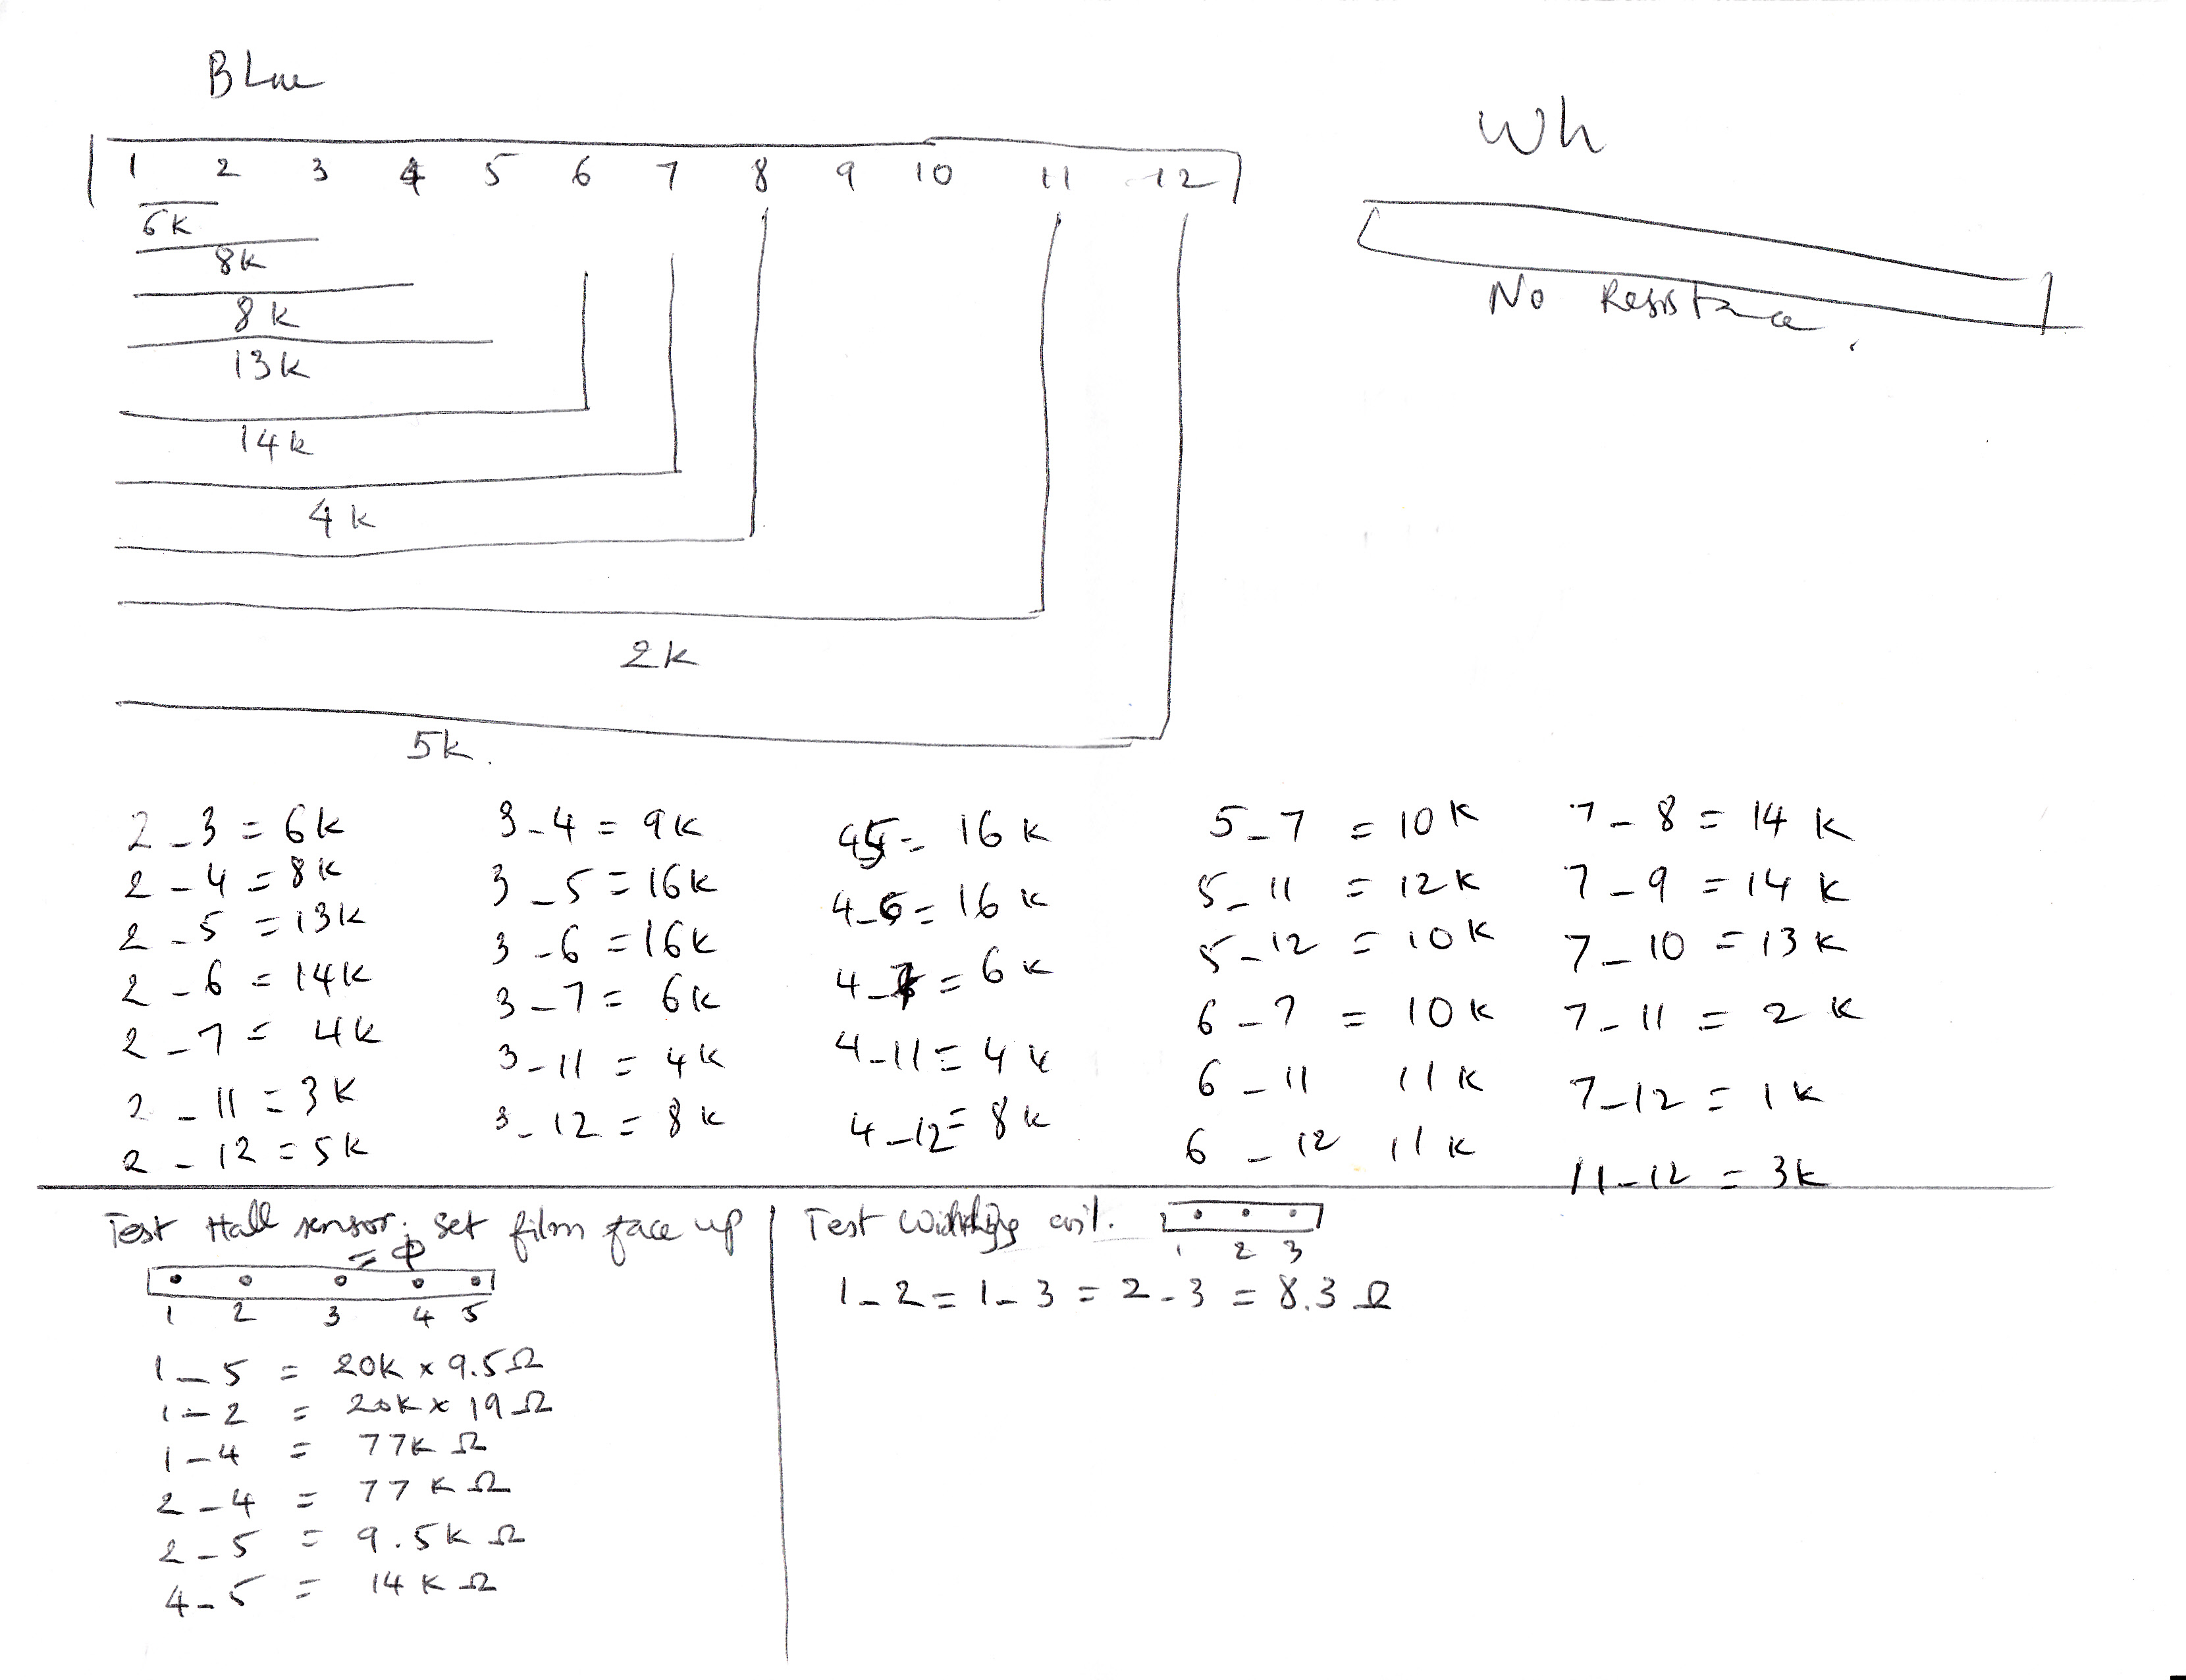 BLue
1 2 3 4 5 6 7 8 9 10 11 12
6K
8K
8K
13K
14k
4K
2K
5k.
Wh
No Resistance.
2-3 = 6k
2-4 = 8K
2-5 = 13K
2-6 = 14K
2-7 = 4K
2-11 = 3K
2-12 = 5K
3-4 = 9K
3-5 = 16K
3-6 = 16K
3-7 = 6K
3-11 = 4K
3-12 = 8K
45 = 16K
4-6 = 16K
4-7 = 6K
4-11 = 4K
4-12 = 8K
5-7 = 10K
5-11 = 12K
5-12 = 10K
6-7 = 10K
6-11 11K
6-12 11K
7-8 = 14K
7-9 = 14K
7-10 = 13K
7-11 = 2K
7-12 = 1K
11-12 = 3K
Test Hall sensor; Set film face up
1 2 3 4 5
1-5 = 20K x 9.5Ω
1-2 = 20K x 19Ω
1-4 = 77KΩ
2-4 = 77KΩ
2-5 = 9.5KΩ
4-5 = 14KΩ
Test coil.
1 2 3
1-2 = 1-3 = 2-3 = 8.3Ω